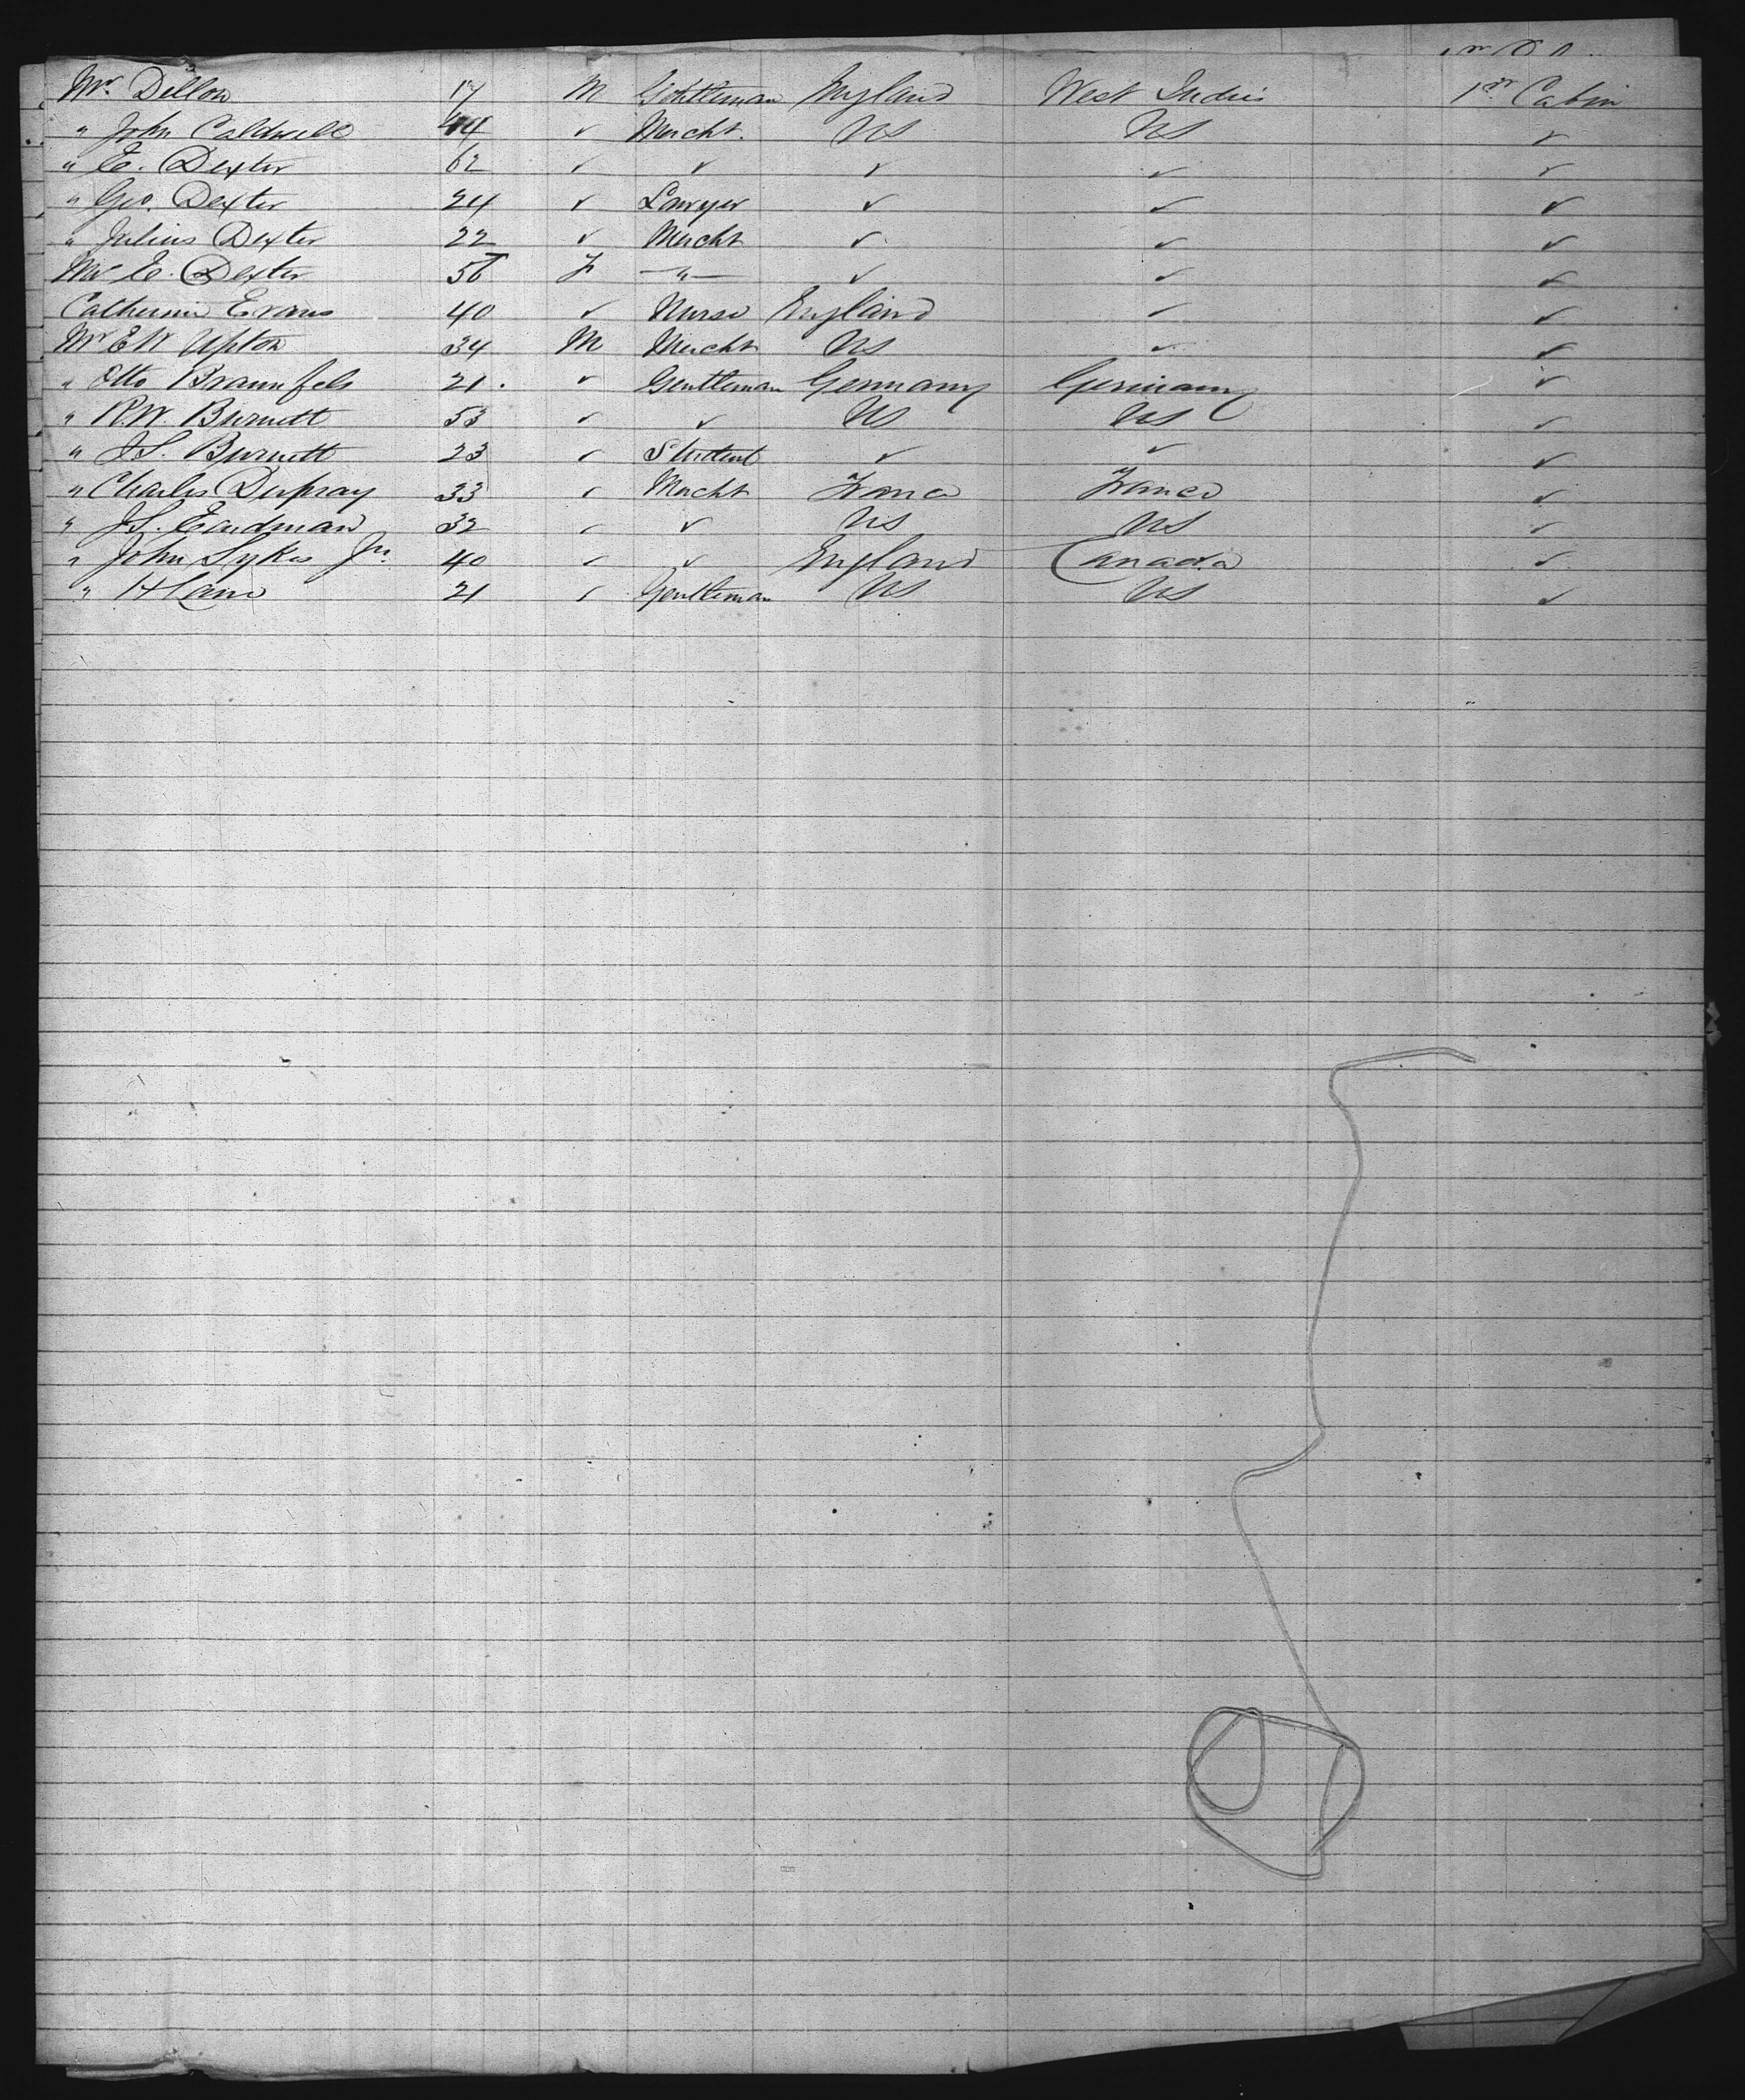 Mr. Dillon 17 M Gentleman England West Indies 1st Cabin
" John Caldwell 44 ✓ Mercht. US US ✓
" E. Dexter 62 ✓ ✓ ✓ ✓ ✓
" Geo. Dexter 24 ✓ Lawyer ✓ ✓ ✓
" Julius Dexter 22 ✓ Mercht ✓ ✓ ✓
Mrs E. Dexter 56 F — " — ✓ ✓ ✓
Catherine Evans 40 ✓ Nurse England ✓ ✓
Mr E W Upton 34 M Mercht US ✓ ✓
" Otto Braunfels 21. ✓ Gentleman Germany Germany ✓
" R.W. Burnett 53 ✓ ✓ US US ✓
" J.S. Burnett 23 ✓ Student ✓ ✓ ✓
" Charles Dupray 33 ✓ Mercht France France ✓
" J.S. 32 ✓ ✓ US US ✓
" John Sykes Jr. 40 ✓ ✓ England Canada ✓
" H Lane 21 ✓ Gentleman US US ✓